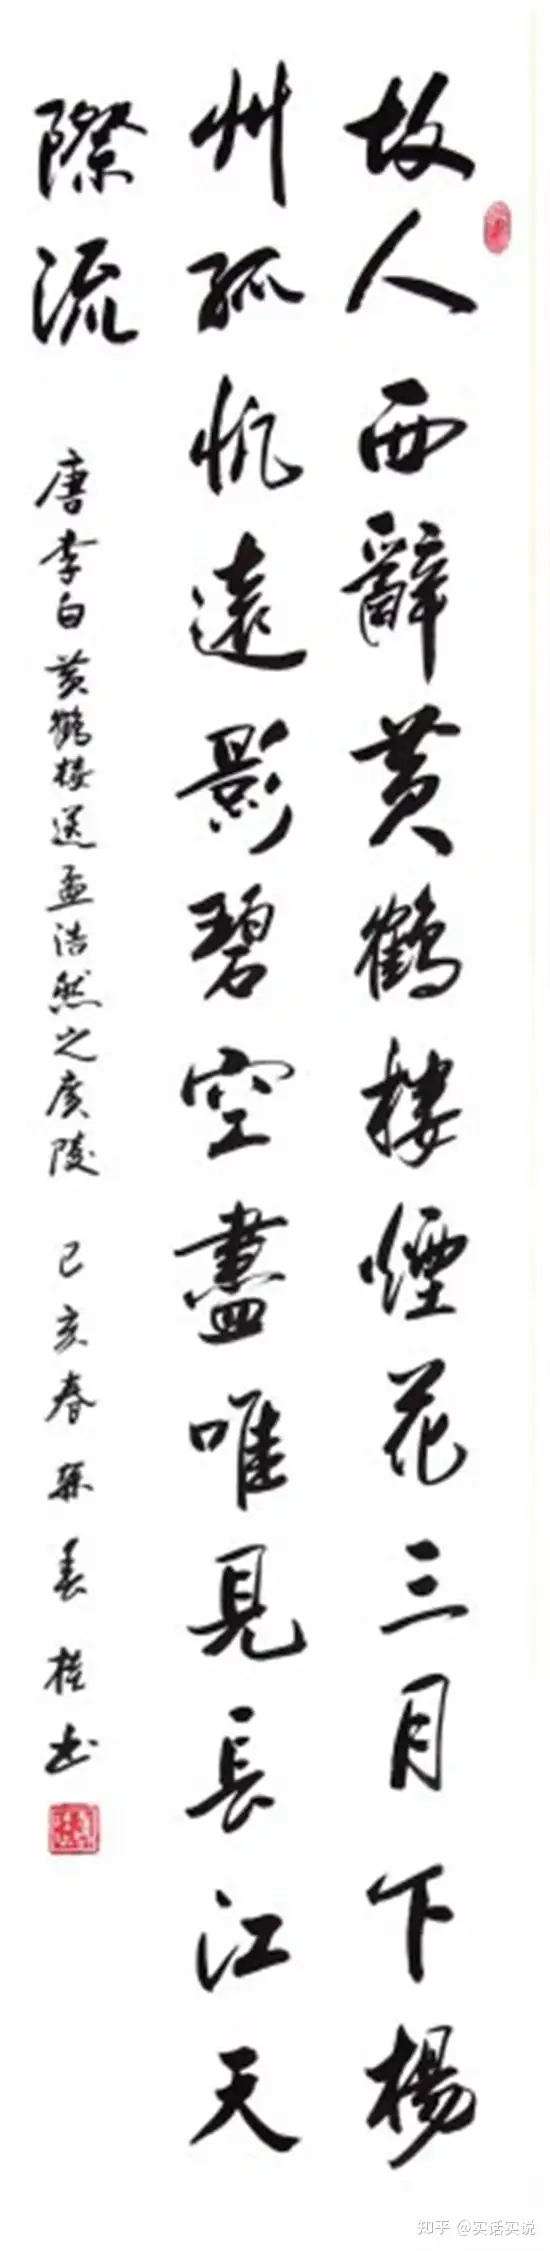 故人西辭黄鶴樓煙花三月下楊
州孤帆遠影碧空盡唯見長江天
際流
唐李白黄鶴樓送孟浩然之廣陵 己亥春孫長桂书
知乎 @实话实说